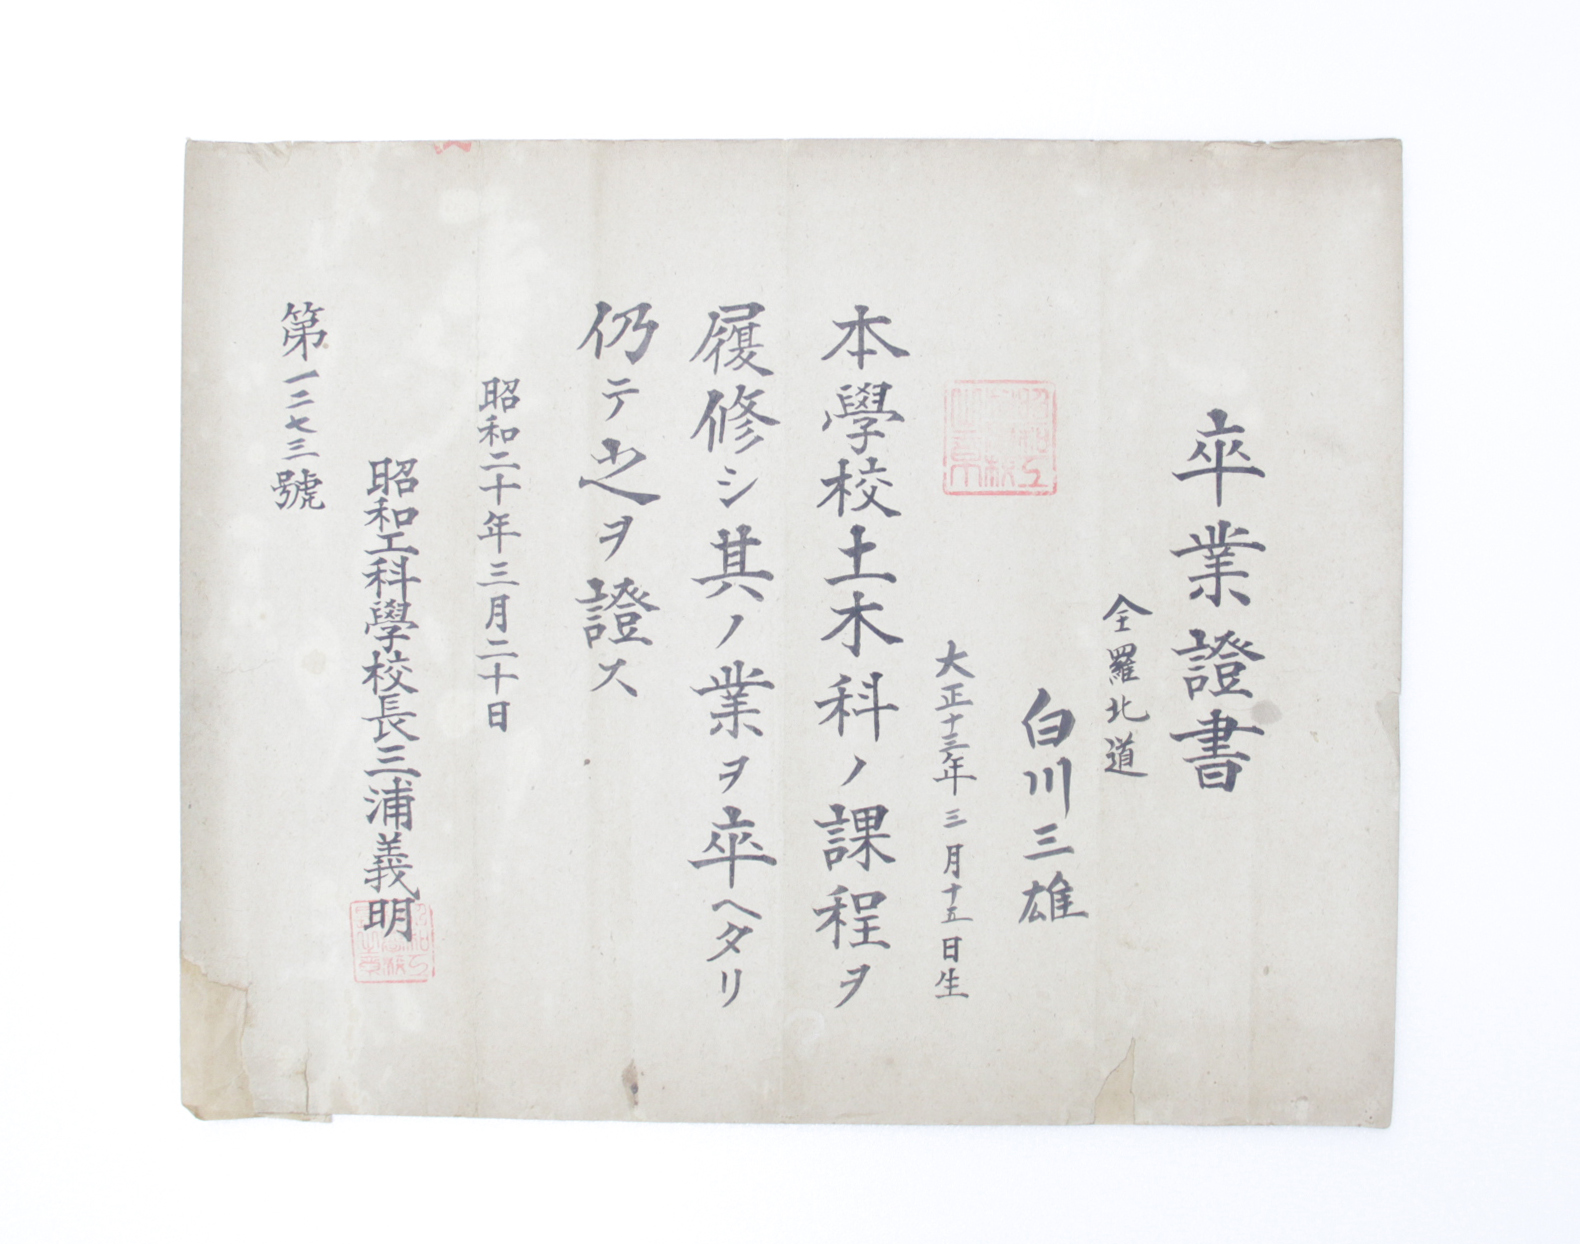 卒業證書
全羅北道
白川三雄
大正十三年三月十五日生
本學校土木科ノ課程ヲ
履修シ其ノ業ヲ卒ヘタリ
仍テ之ヲ證ス
昭和二十年三月二十日
昭和工科學校長三浦義明
第一二七三號